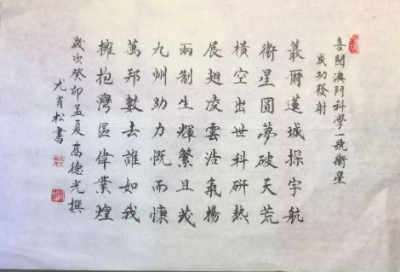 喜聞澳門科學一號衛星
成功發射
蕞爾蓮城探宇航
衛星圓夢破天荒
橫空出世科研熱
展翅凌雲浩氣楊
兩制生輝繁且茂
九州助力慨而慷
萬邦數去誰如我
擁抱灣區偉業煌
歲次癸卯孟夏高德光撰
尤肖松書